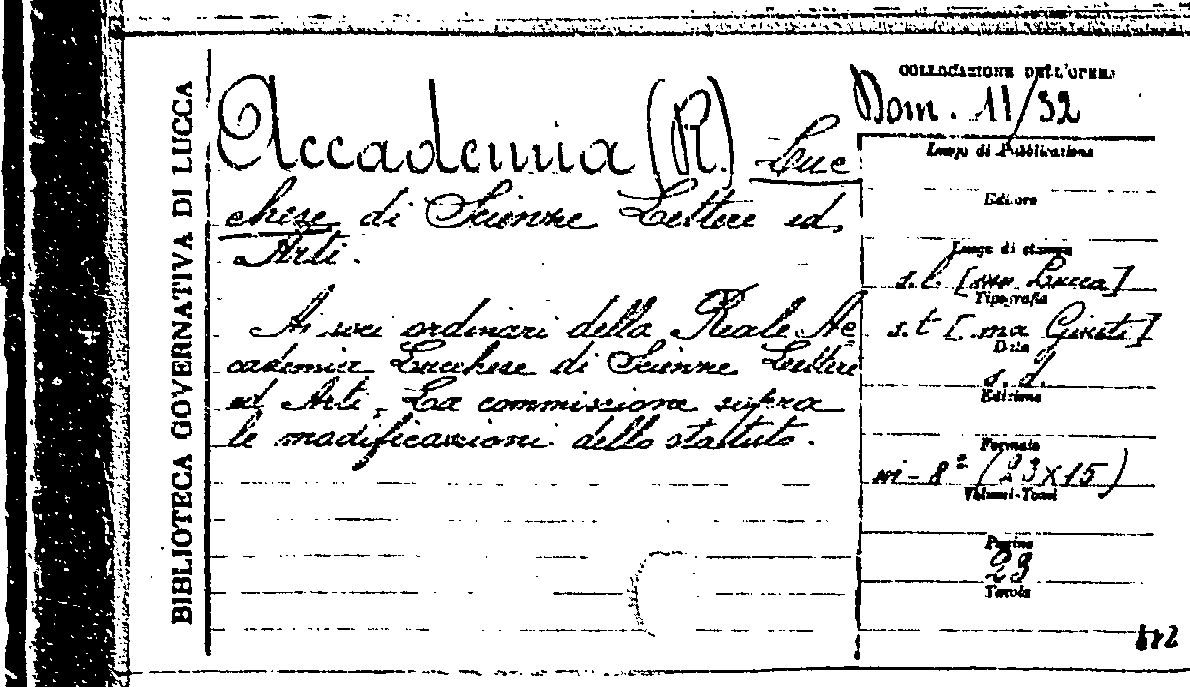 BIBLIOTECA GOVERNATIVA DI LUCCA
Accademia (R.) Luc
chese di Scienze Lettere ed
Arti.
Ai soci ordinari della Reale Ac
cademia Lucchese di Scienze Lettere
ed Arti. La commissione sopra
le modificazioni dello statuto.
COLLOCAZIONE DELL'OPERA
Dom. 11/32
Luogo di Pubblicazione
Editore
Luogo di stampa
s. l. [ma Lucca]
Tipografia
s. t [ma Giusti]
Data
s. d.
Edizione
Formato
in-8° (23x15)
Volumi-Tomi
Pagine
23
Tavole